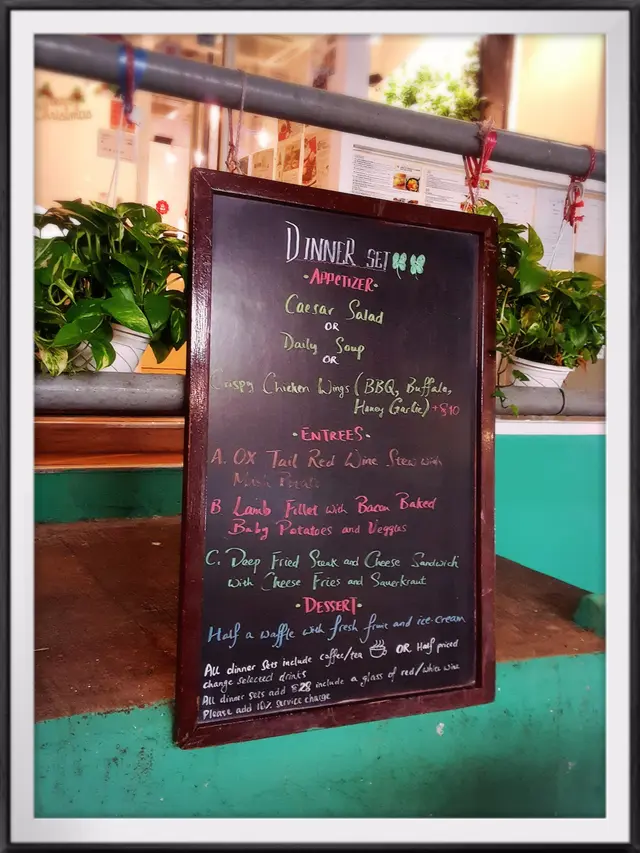 Christmas
DINNER SET
·APPETIZER·
Caesar Salad
OR
Daily Soup
OR
Crispy Chicken Wings (BBQ, Buffalo,
Honey Garlic) +$10
·ENTREES·
A. OX Tail Red Wine Stew with
Mash Potato
B Lamb Fillet with Bacon Baked
Baby Potatoes and Veggies
C. Deep Fried Steak and Cheese Sandwich
with Cheese Fries and Sauerkraut
·DESSERT·
Half a waffle with fresh fruit and ice-cream
All dinner sets include coffee/tea OR Half priced
change selected drinks
All dinner sets add $28 include a glass of red/white wine
Please add 10% service charge